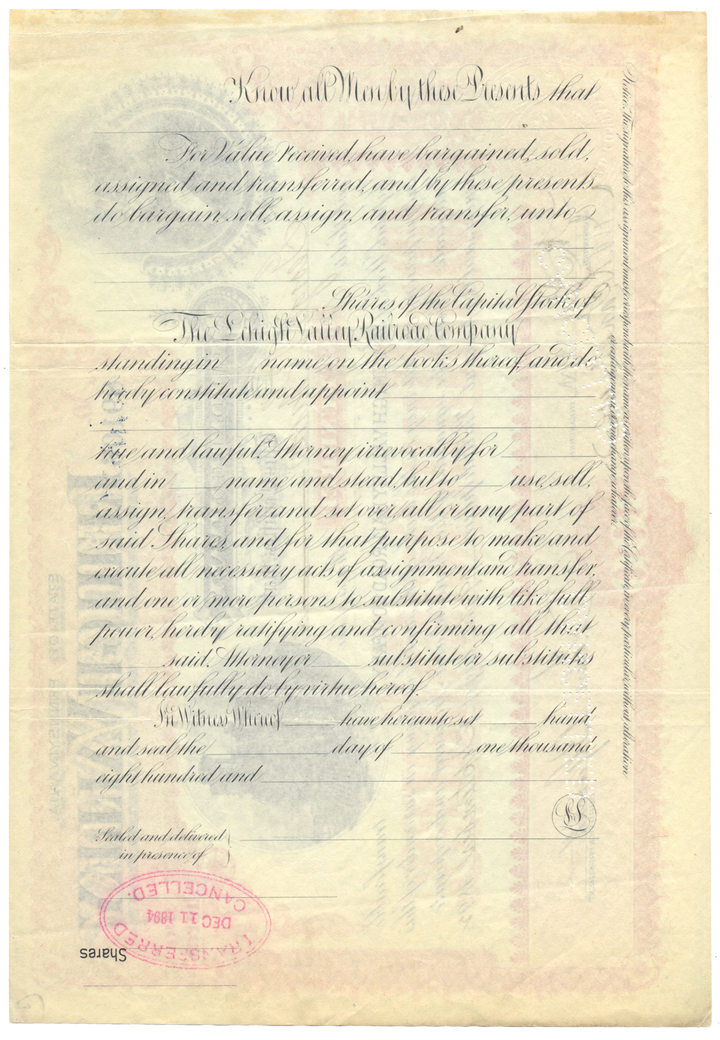 Know all Men by these Presents that
For Value received, have bargained, sold,
assigned and transferred, and by these presents
do bargain, sell, assign, and transfer, unto
Shares of the Capital Stock of
The Lehigh Valley Railroad Company
standing in name on the books thereof, and do
hereby constitute and appoint
true and lawful Attorney irrevocably for
and in name and stead, but to use, sell,
assign, transfer and set over, all or any part of
said Shares, and for that purpose to make and
execute all necessary acts of assignment and transfer,
and one or more persons to substitute with like full
power, hereby ratifying and confirming all that
said Attorney or substitute or substitutes
shall lawfully do by virtue hereof.
In Witness Whereof have hereunto set hand
and seal the day of one thousand
eight hundred and
LS
Sealed and delivered
in presence of
TRANSFERRED
DEC 11 1894
CANCELLED.
Shares
Notice. The signature to this assignment must correspond with the name as written upon the face of the Certificate, in every particular, without alteration
or enlargement, or any change whatever.